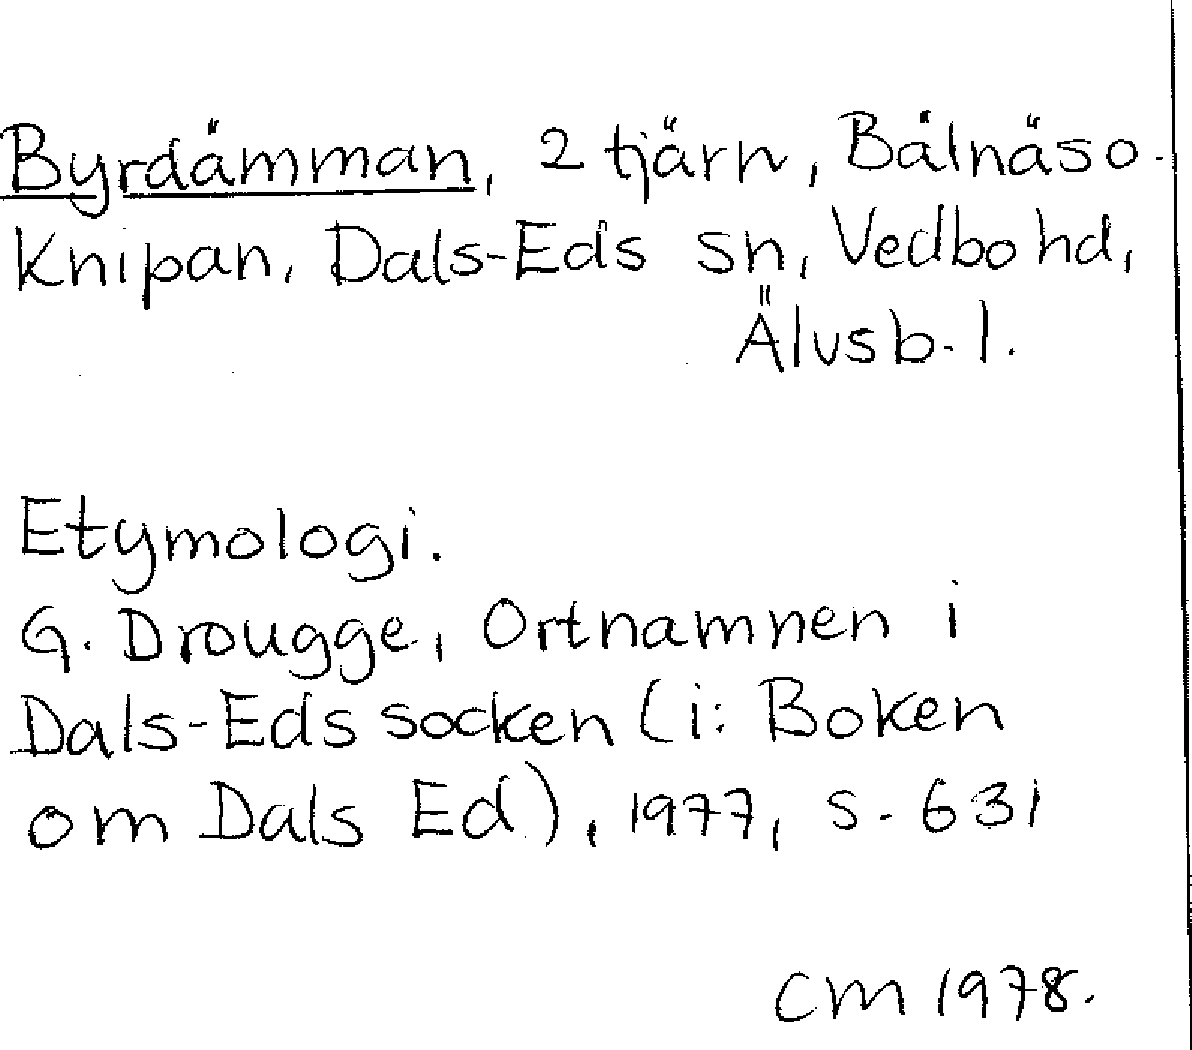 Byrdämman, 2 tjärn, Bälnäs o.
Knipan, Dals-Eds sn, Vedbo hd,
Älvsb. l.
Etymologi.
G. Drougge, Ortnamnen i
Dals-Eds socken (i: Boken
om Dals Ed), 1977, s. 631
CM 1978.